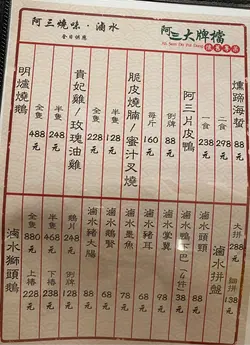 阿三燒味·滷水
全日供應
阿三大牌檔
懷舊粵菜
燻蹄海蜇
88元
阿三片皮鴨
一食 238元
二食 298元
脆皮燒腩/蜜汁叉燒
例牌 88元
每斤 160元
貴妃雞/玫瑰油雞
半隻 128元
全隻 228元
明爐燒鵝
半隻 248元
全隻 488元
滷水拼盤
大拼 288元
細拼 138元
滷水頭頸 88元
滷水鴨下巴(4件) 38元
滷水掌翼 88元
滷水豬耳 78元
滷水墨魚 78元
滷水鵝腎 68元
滷水豬大腸 68元
滷水獅頭鵝
全隻 880元
半隻 468元
鵝片 248元
上樁 228元
下樁 238元
例牌 128元